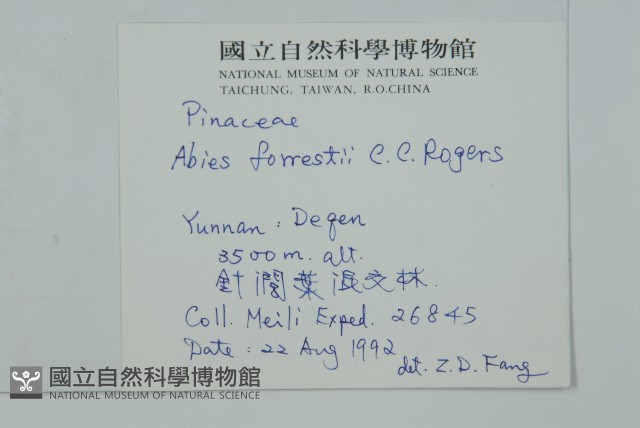 國立自然科學博物館
NATIONAL MUSEUM OF NATURAL SCIENCE
TAICHUNG, TAIWAN, R.O.CHINA
Pinaceae
Abies forrestii C.C.Rogers
Yunnan : Deqen
3500m. alt.
針闊葉混交林.
Coll. Meili Exped. 26845
Date : 22 Aug 1992
det. Z.D. Fang
國立自然科學博物館
NATIONAL MUSEUM OF NATURAL SCIENCE